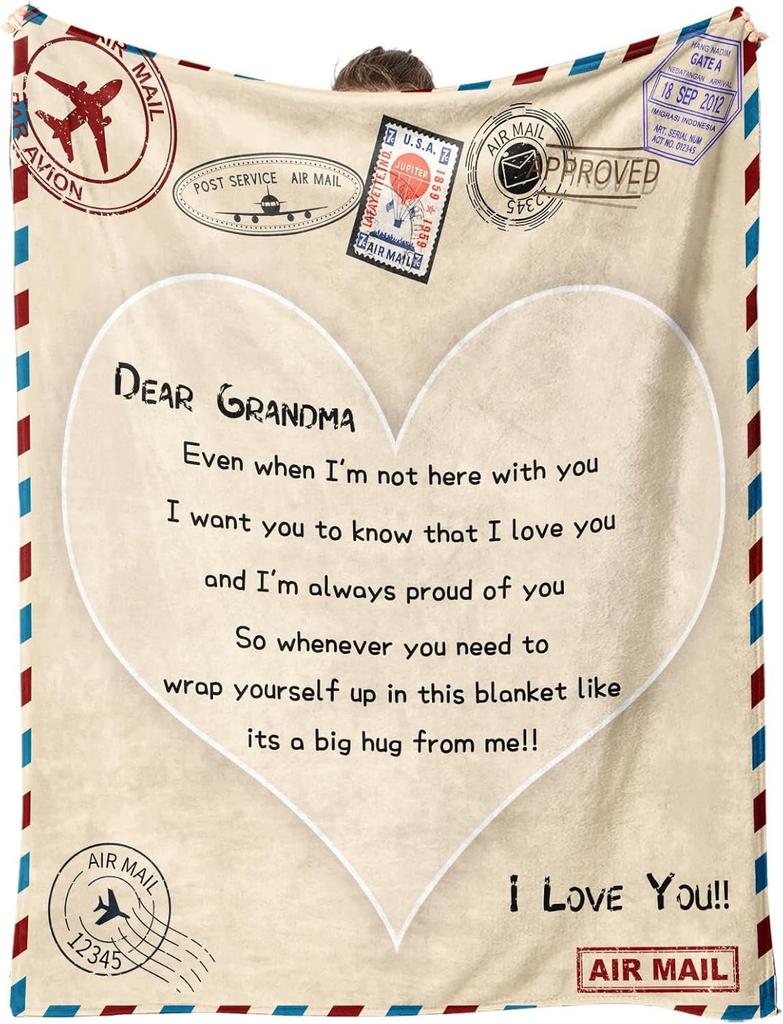 AIR MAIL
PAR AVION
POST SERVICE AIR MAIL
U.S.A.
JUPITER
LAFAYETTE, IND.
1859 ★ 1959
7¢
AIR MAIL
7¢
AIR MAIL
12345
APPROVED
HANG NADIM
GATE A
KEDATANGAN ARRIVAL
18 SEP 2012
IMIGRASI INDONESIA
ART. SERIAL NUM
ACT NO. 012345
DEAR GRANDMA
Even when I'm not here with you
I want you to know that I love you
and I'm always proud of you
So whenever you need to
wrap yourself up in this blanket like
its a big hug from me!!
I LOVE YOU!!
AIR MAIL
12345
AIR MAIL